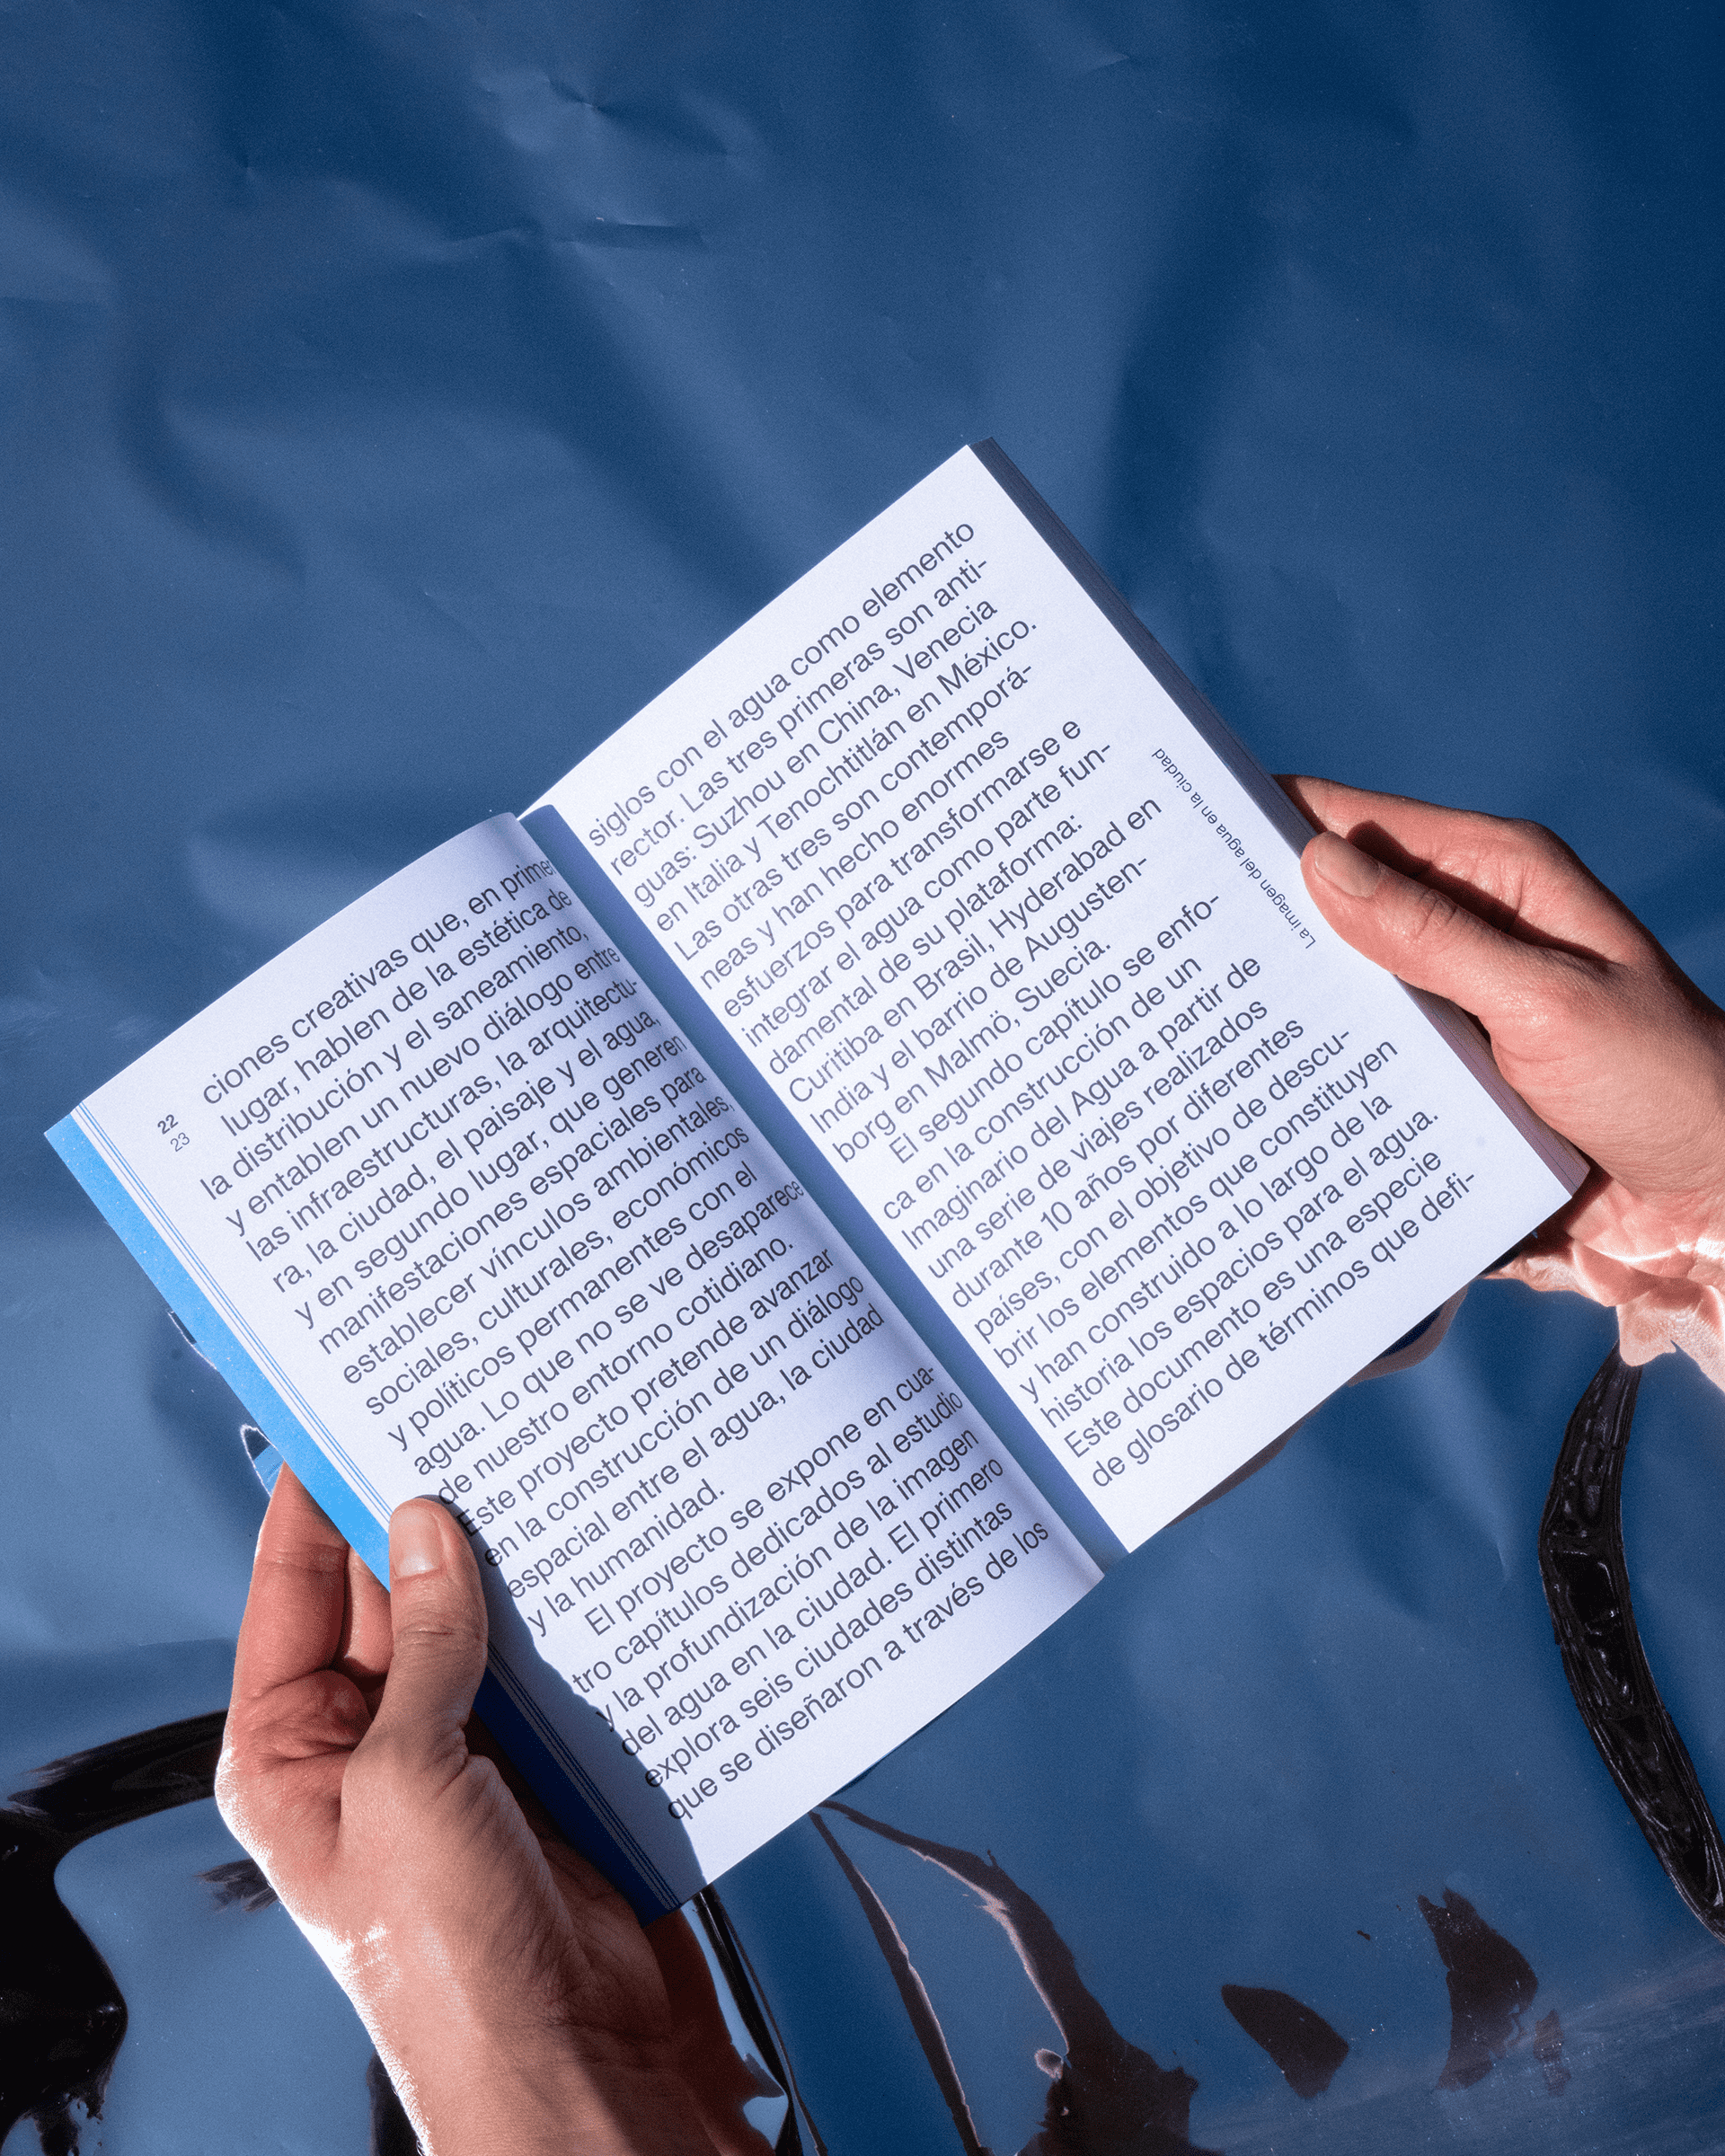 22
23
ciones creativas que, en primer
lugar, hablen de la estética de
la distribución y el saneamiento,
y entablen un nuevo diálogo entre
las infraestructuras, la arquitectu-
ra, la ciudad, el paisaje y el agua,
y en segundo lugar, que generen
manifestaciones espaciales para
establecer vínculos ambientales,
sociales, culturales, económicos
y políticos permanentes con el
agua. Lo que no se ve desaparece
de nuestro entorno cotidiano.
Este proyecto pretende avanzar
en la construcción de un diálogo
espacial entre el agua, la ciudad
y la humanidad.
El proyecto se expone en cua-
tro capítulos dedicados al estudio
y la profundización de la imagen
del agua en la ciudad. El primero
explora seis ciudades distintas
que se diseñaron a través de los
siglos con el agua como elemento
rector. Las tres primeras son anti-
guas: Suzhou en China, Venecia
en Italia y Tenochtitlán en México.
Las otras tres son contemporá-
neas y han hecho enormes
esfuerzos para transformarse e
integrar el agua como parte fun-
damental de su plataforma:
Curitiba en Brasil, Hyderabad en
India y el barrio de Augusten-
borg en Malmö, Suecia.
El segundo capítulo se enfo-
ca en la construcción de un
Imaginario del Agua a partir de
una serie de viajes realizados
durante 10 años por diferentes
países, con el objetivo de descu-
brir los elementos que constituyen
y han construido a lo largo de la
historia los espacios para el agua.
Este documento es una especie
de glosario de términos que defi-
La imagen del agua en la ciudad